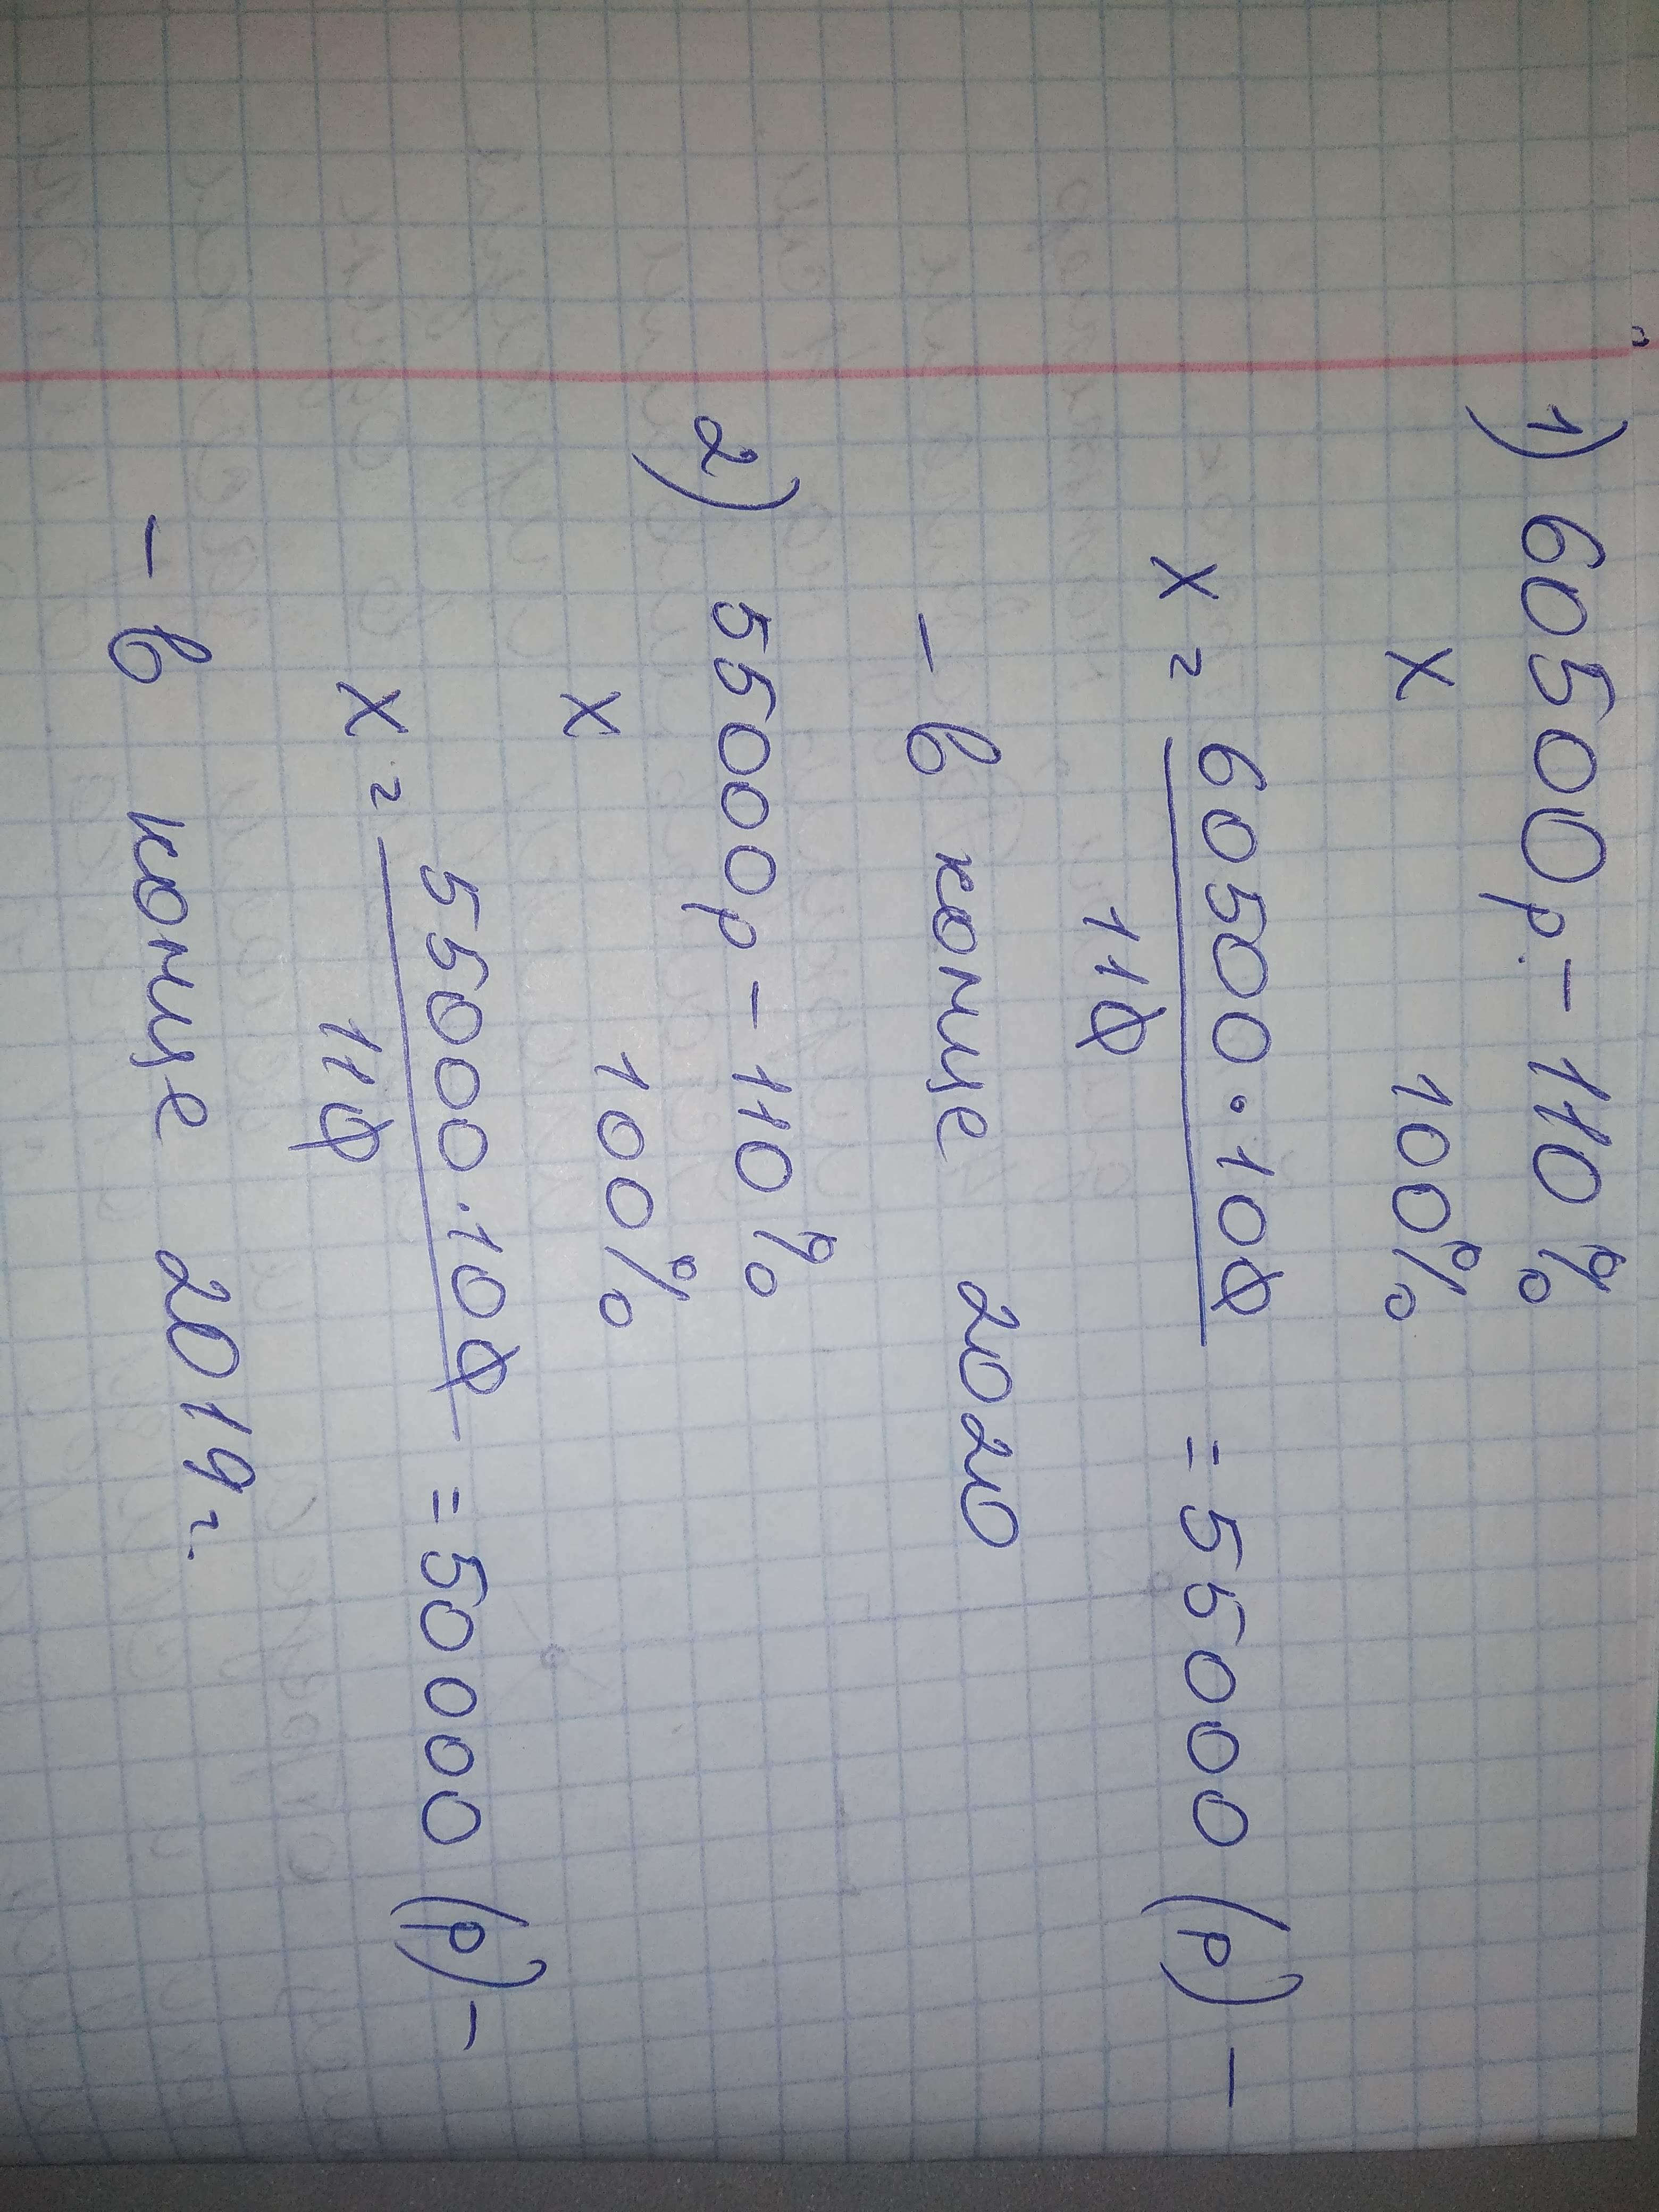 1) 60500р. - 110%
х 100%
х = 60500 · 100
110
= 55000 (р) -
- в конце 2020
2) 55000р - 110%
х 100%
х = 55000 · 100
110
= 50000 (р) -
- в конце 2019г.